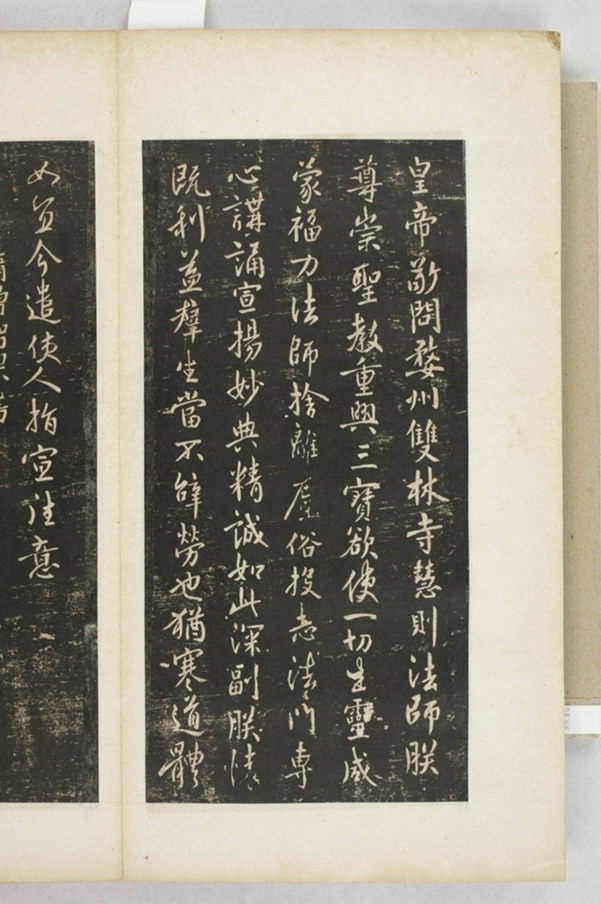 皇帝敬問婺州雙林寺慧則法師朕
尊崇聖教重興三寶欲使一切生靈咸
蒙福力法師捨離塵俗投志法門專
心講誦宣揚妙典精誠如此深副朕懷
既利益羣生當不辭勞也猶寒道體
如宜今遣使人指宣往意